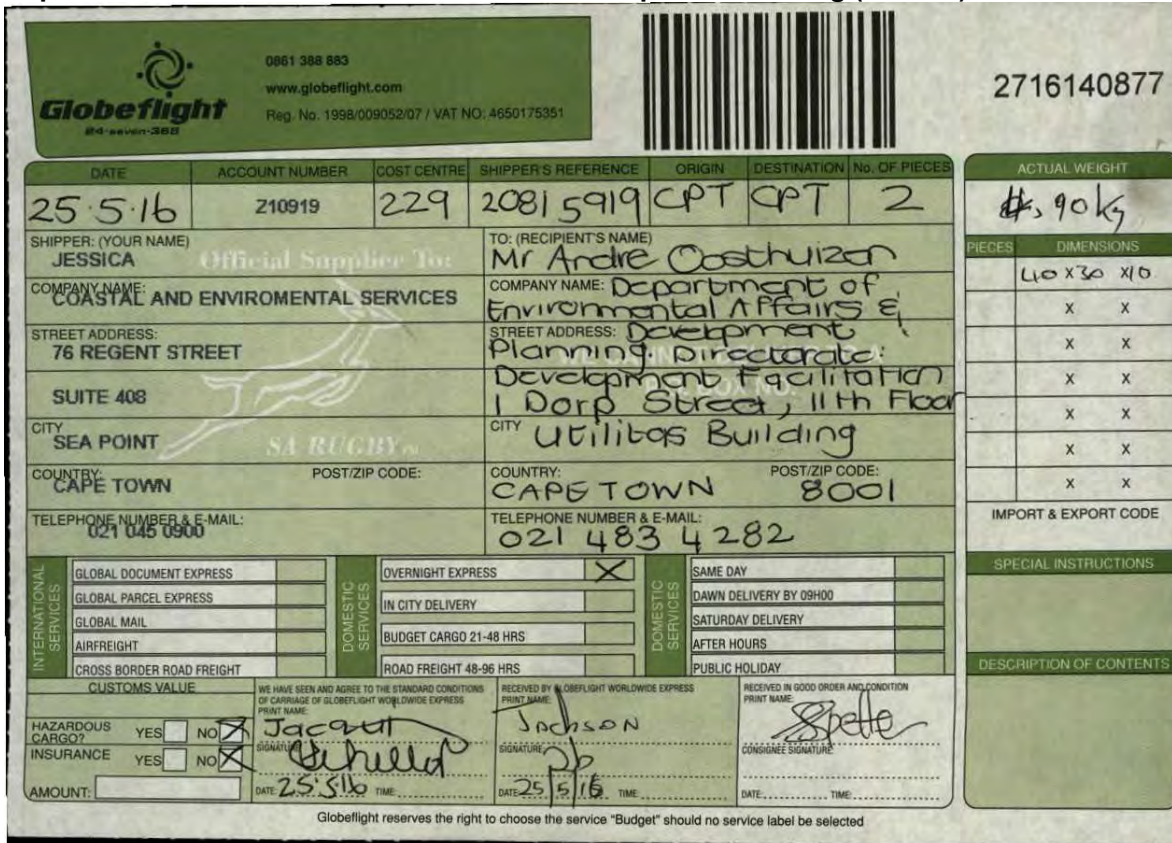 Globeflight
24-seven-365
0861 388 883
www.globeflight.com
Reg. No. 1998/009052/07 / VAT NO: 4650175351
2716140877
DATE
ACCOUNT NUMBER
COST CENTRE
SHIPPER'S REFERENCE
ORIGIN
DESTINATION
No. OF PIECES
25·5·16
Z10919
229
20815919
CPT
CPT
2
ACTUAL WEIGHT
90 kg
PIECES
DIMENSIONS
40 x 30 x 10
X X
X X
X X
X X
X X
X X
IMPORT & EXPORT CODE
SPECIAL INSTRUCTIONS
DESCRIPTION OF CONTENTS
SHIPPER: (YOUR NAME)
JESSICA
Official Supplier To:
COMPANY NAME:
COASTAL AND ENVIROMENTAL SERVICES
STREET ADDRESS:
76 REGENT STREET
SUITE 408
CITY
SEA POINT
SA RUGBY
COUNTRY:
CAPE TOWN
POST/ZIP CODE:
TELEPHONE NUMBER & E-MAIL:
021 045 0900
TO: (RECIPIENT'S NAME)
Mr Andre Oosthuizen
COMPANY NAME: Department of
Environmental Affairs &
STREET ADDRESS: Development
Planning. Directorate:
Development Facilitation
1 Dorp Street, 11th Floor
CITY Utilitas Building
COUNTRY:
CAPE TOWN
POST/ZIP CODE:
8001
TELEPHONE NUMBER & E-MAIL:
021 483 4282
INTERNATIONAL SERVICES
GLOBAL DOCUMENT EXPRESS
GLOBAL PARCEL EXPRESS
GLOBAL MAIL
AIRFREIGHT
CROSS BORDER ROAD FREIGHT
DOMESTIC SERVICES
OVERNIGHT EXPRESS X
IN CITY DELIVERY
BUDGET CARGO 21-48 HRS
ROAD FREIGHT 48-96 HRS
DOMESTIC SERVICES
SAME DAY
DAWN DELIVERY BY 09H00
SATURDAY DELIVERY
AFTER HOURS
PUBLIC HOLIDAY
CUSTOMS VALUE
HAZARDOUS CARGO? YES NO X
INSURANCE YES NO X
AMOUNT:
WE HAVE SEEN AND AGREE TO THE STANDARD CONDITIONS
OF CARRIAGE OF GLOBEFLIGHT WORLDWIDE EXPRESS
PRINT NAME:
Jacqui
SIGNATURE
DATE: 25·5·16 TIME:
RECEIVED BY GLOBEFLIGHT WORLDWIDE EXPRESS
PRINT NAME:
Jackson
SIGNATURE
DATE 25/5/16 TIME:
RECEIVED IN GOOD ORDER AND CONDITION
PRINT NAME:
CONSIGNEE SIGNATURE:
DATE: TIME:
Globeflight reserves the right to choose the service "Budget" should no service label be selected